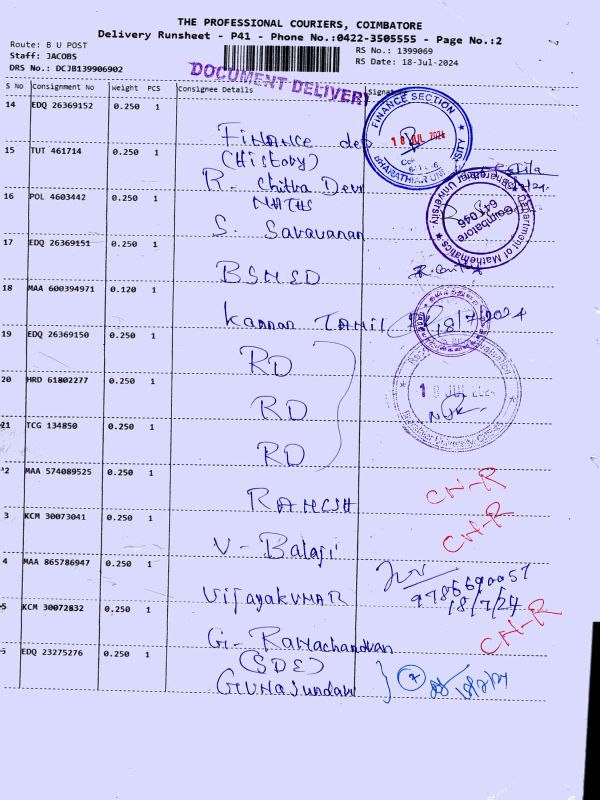 THE PROFESSIONAL COURIERS, COIMBATORE
Delivery Runsheet - P41 - Phone No.:0422-3505555 - Page No.:2
Route: B U POST
RS No.: 1399069
Staff: JACOBS
RS Date: 18-Jul-2024
DRS No.: DCJB139906902
DOCUMENT DELIVERY
S No Consignment No Weight PCS Consignee Details Signature
14 EDQ 26369152 0.250 1
FINANCE SECTION
18 JUL 2024
Finance dep
15 TUT 461714 0.250 1
(History)
R. Chitra Devi
16 POL 4603442 0.250 1
MATHS
S. Saravanan
Department of Mathematics
Coimbatore
641 046
17 EDQ 26369151 0.250 1
BSMED
18 MAA 600394971 0.120 1
Kannan TAMIL
18/7/2024
19 EDQ 26369150 0.250 1
RD
20 HRD 61802277 0.250 1
RD
21 TCG 134850 0.250 1
RD
2 MAA 574089525 0.250 1
RAMESH
CN-R
3 KCM 30073041 0.250 1
V - Balaji
CN-R
4 MAA 865786947 0.250 1
VijayakUMAR
9786690057
18/7/24
5 KCM 30072832 0.250 1
G - Ramachandran
CN-R
EDQ 23275276 0.250 1
(SDE)
GUNASundari